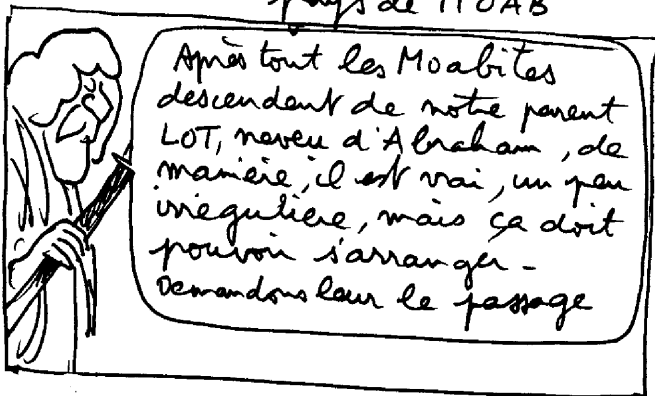 pays de MOAB
Après tout les Moabites
descendent de notre parent
LOT, neveu d'Abraham, de
manière, il est vrai, un peu
irrégulière, mais ça doit
pouvoir s'arranger -
Demandons leur le passage